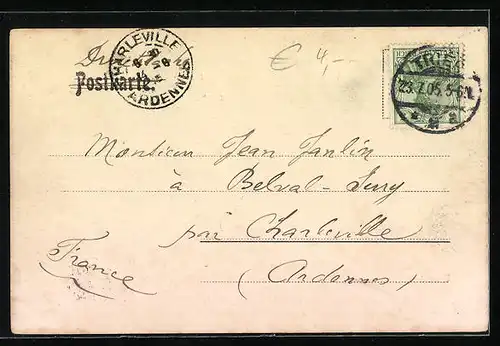 CHARLEVILLE
ARDENNES
Postkarte.
€ 4,-
TRIER
23.7.05. 5-6N.
* a
Monsieur Jean
à Belval-Sury
par Charleville
(Ardennes)
France